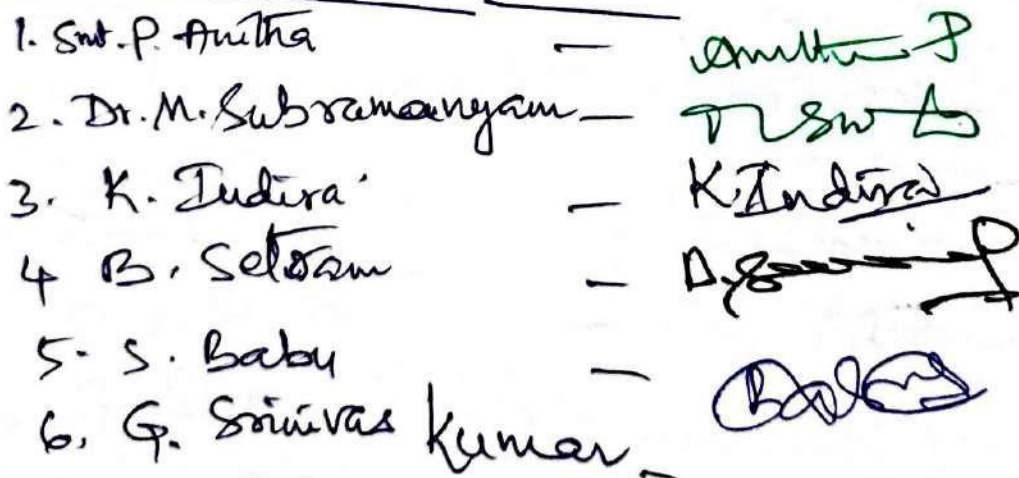 1. Smt. P. Anitha — Anitha P
2. Dr. M. Subramanyam —
3. K. Indira — K. Indira
4 B. Setram —
5. S. Baby — Baby
6. G. Srinivas Kumar –